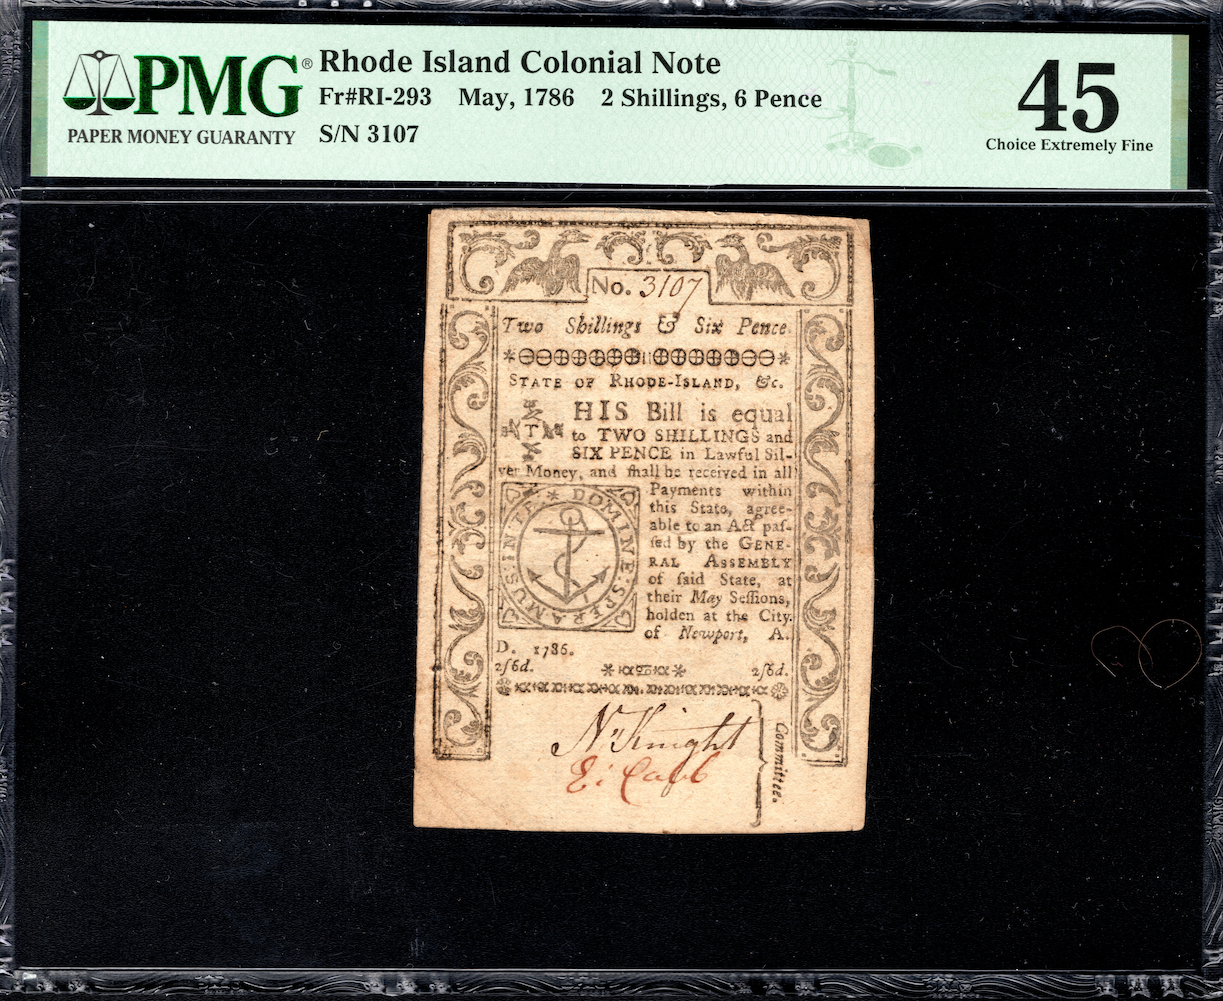 PMG®
PAPER MONEY GUARANTY
Rhode Island Colonial Note
Fr#RI-293 May, 1786 2 Shillings, 6 Pence
S/N 3107
45
Choice Extremely Fine
No. 3107
Two Shillings & Six Pence.
STATE OF RHODE-ISLAND, &c.
THIS Bill is equal
to TWO SHILLINGS and
SIX PENCE in Lawful Sil-
ver Money, and ſhall be received in all
Payments within
this State, agree-
able to an Act paſ-
ſed by the GENE-
RAL ASSEMBLY
of ſaid State, at
their May Seſſions,
holden at the City
of Newport, A.
D. 1786.
IN TE * DOMINE: SPERAMUS:
2ſ6d. 2ſ6d.
N Knight
Committee.